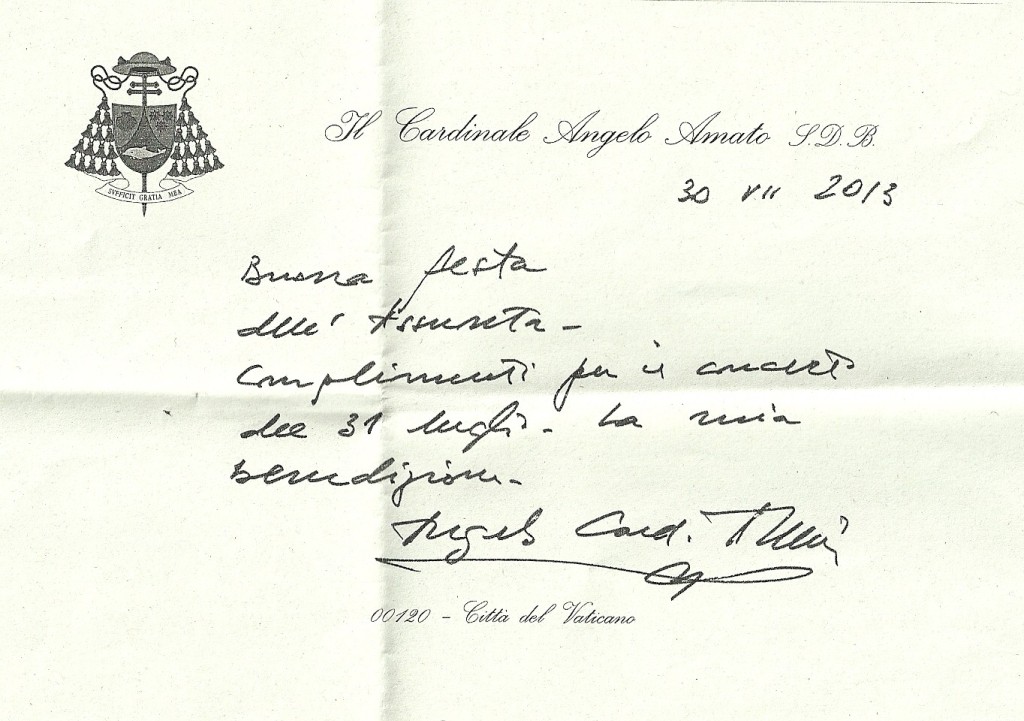 Il Cardinale Angelo Amato S.D.B.
SVFFICIT GRATIA MEA
30 VII 2013
Buona festa
dell'Assunta -
Complimenti per il concerto
del 31 luglio - La mia
benedizione -
Angelo Card. Amato
00120 - Città del Vaticano